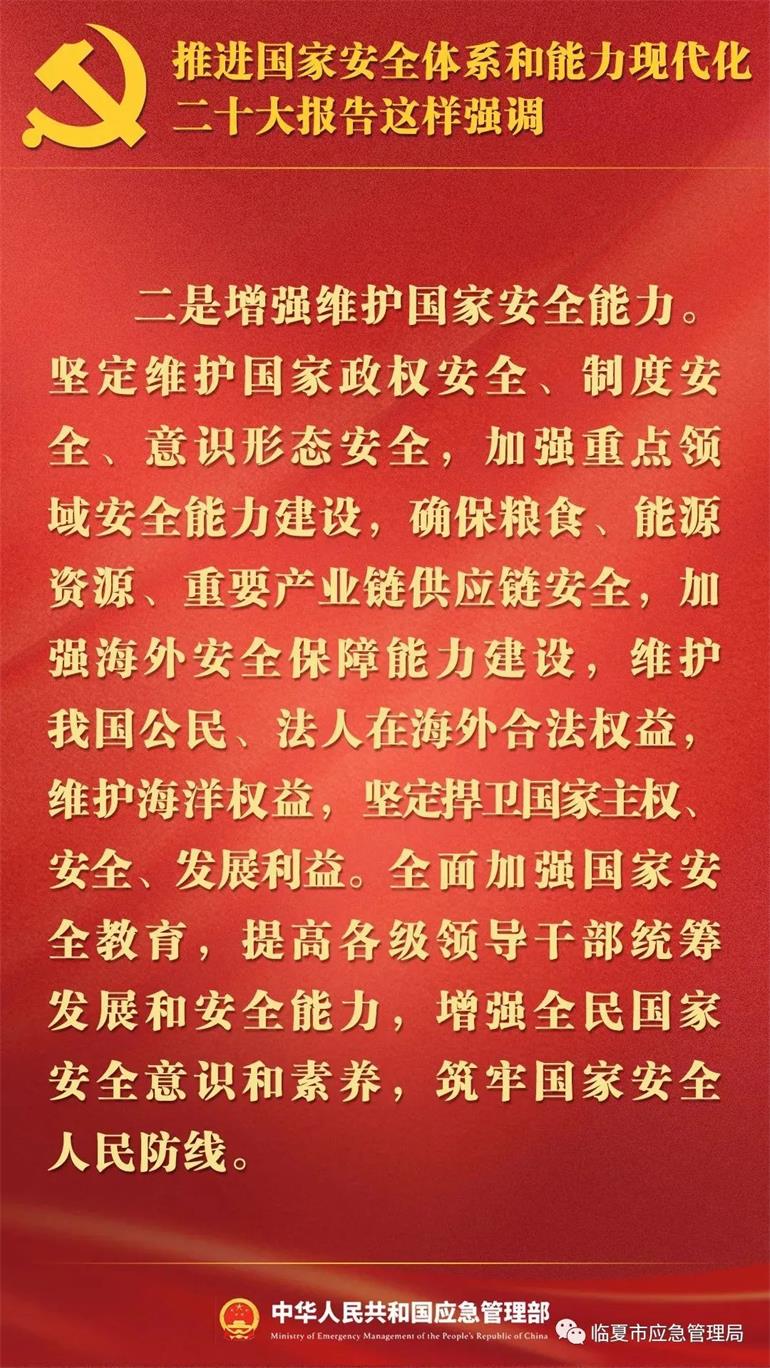 推进国家安全体系和能力现代化
二十大报告这样强调
二是增强维护国家安全能力。
坚定维护国家政权安全、制度安
全、意识形态安全，加强重点领
域安全能力建设，确保粮食、能源
资源、重要产业链供应链安全，加
强海外安全保障能力建设，维护
我国公民、法人在海外合法权益，
维护海洋权益，坚定捍卫国家主权、
安全、发展利益。全面加强国家安
全教育，提高各级领导干部统筹
发展和安全能力，增强全民国家
安全意识和素养，筑牢国家安全
人民防线。
中华人民共和国应急管理部
Ministry of Emergency Management of the People's Republic of China
临夏市应急管理局